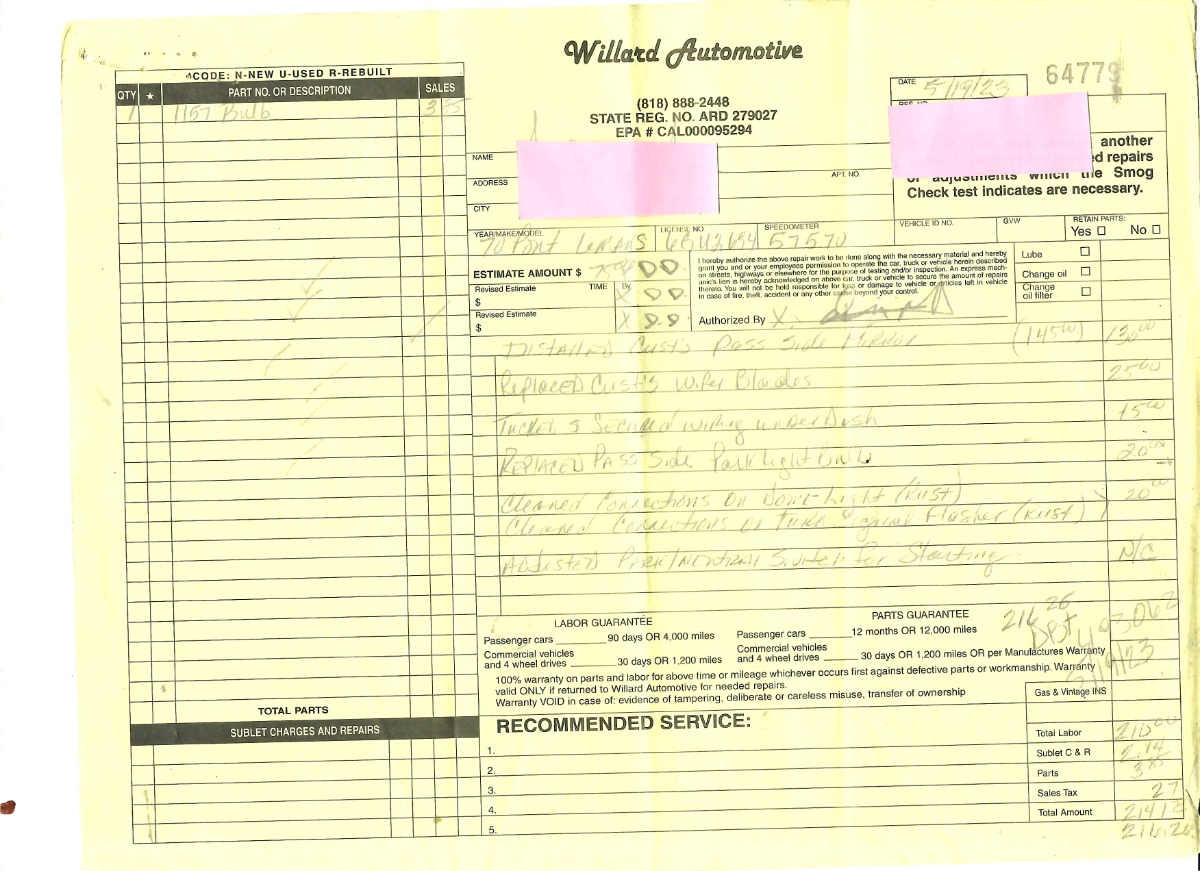 Willard Automotive
64779
CODE: N-NEW U-USED R-REBUILT
QTY ★ PART NO. OR DESCRIPTION SALES
1 1157 Bulb 3
(818) 888-2448
STATE REG. NO. ARD 279027
EPA # CAL000095294
DATE 5/19/23
another
ed repairs
or adjustments which the Smog
Check test indicates are necessary.
NAME
ADDRESS APT. NO.
CITY
YEAR/MAKE/MODEL LICENSE NO SPEEDOMETER VEHICLE ID NO. GVW RETAIN PARTS:
70 Pont LeMans 57570 Yes ☐ No ☐
ESTIMATE AMOUNT $
Revised Estimate TIME By
$ X
Revised Estimate
$ X
I hereby authorize the above repair work to be done along with the necessary material and hereby
grant you and or your employees permission to operate the car, truck or vehicle herein described
on streets, highways or elsewhere for the purpose of testing and/or inspection. An express mech-
anic's lien is hereby acknowledged on above car, truck or vehicle to secure the amount of repairs
thereto. You will not be held responsible for loss or damage to vehicle or articles left in vehicle
in case of fire, theft, accident or any other cause beyond your control.
Authorized By X
Lube ☐
Change oil ☐
Change
oil filter ☐
Installed Cust's Pass Side Mirror (145 00) 130 00
Replaced Cust's Wiper Blades 25 00
Tucked & Secured wiring under Dash 15 00
Replaced Pass Side Park Light Bulb 20 00
Cleaned Connections On Dome-Light (Rust) 20
Cleaned Connections on Turn Signal Flasher (Rust)
Adjusted Park/Neutral Switch for Starting N/C
LABOR GUARANTEE
Passenger cars 90 days OR 4,000 miles
Commercial vehicles
and 4 wheel drives 30 days OR 1,200 miles
PARTS GUARANTEE
Passenger cars 12 months OR 12,000 miles
Commercial vehicles
and 4 wheel drives 30 days OR 1,200 miles OR per Manufactures Warranty
216 26
DBT
5/19/23
100% warranty on parts and labor for above time or mileage whichever occurs first against defective parts or workmanship. Warranty
valid ONLY if returned to Willard Automotive for needed repairs.
Warranty VOID in case of: evidence of tampering, deliberate or careless misuse, transfer of ownership
TOTAL PARTS
SUBLET CHARGES AND REPAIRS
RECOMMENDED SERVICE:
1.
2.
3.
4.
5.
Gas & Vintage INS
Total Labor 210 00
Sublet C & R 2.14
Parts 3
Sales Tax 27
Total Amount 214 12
216.26